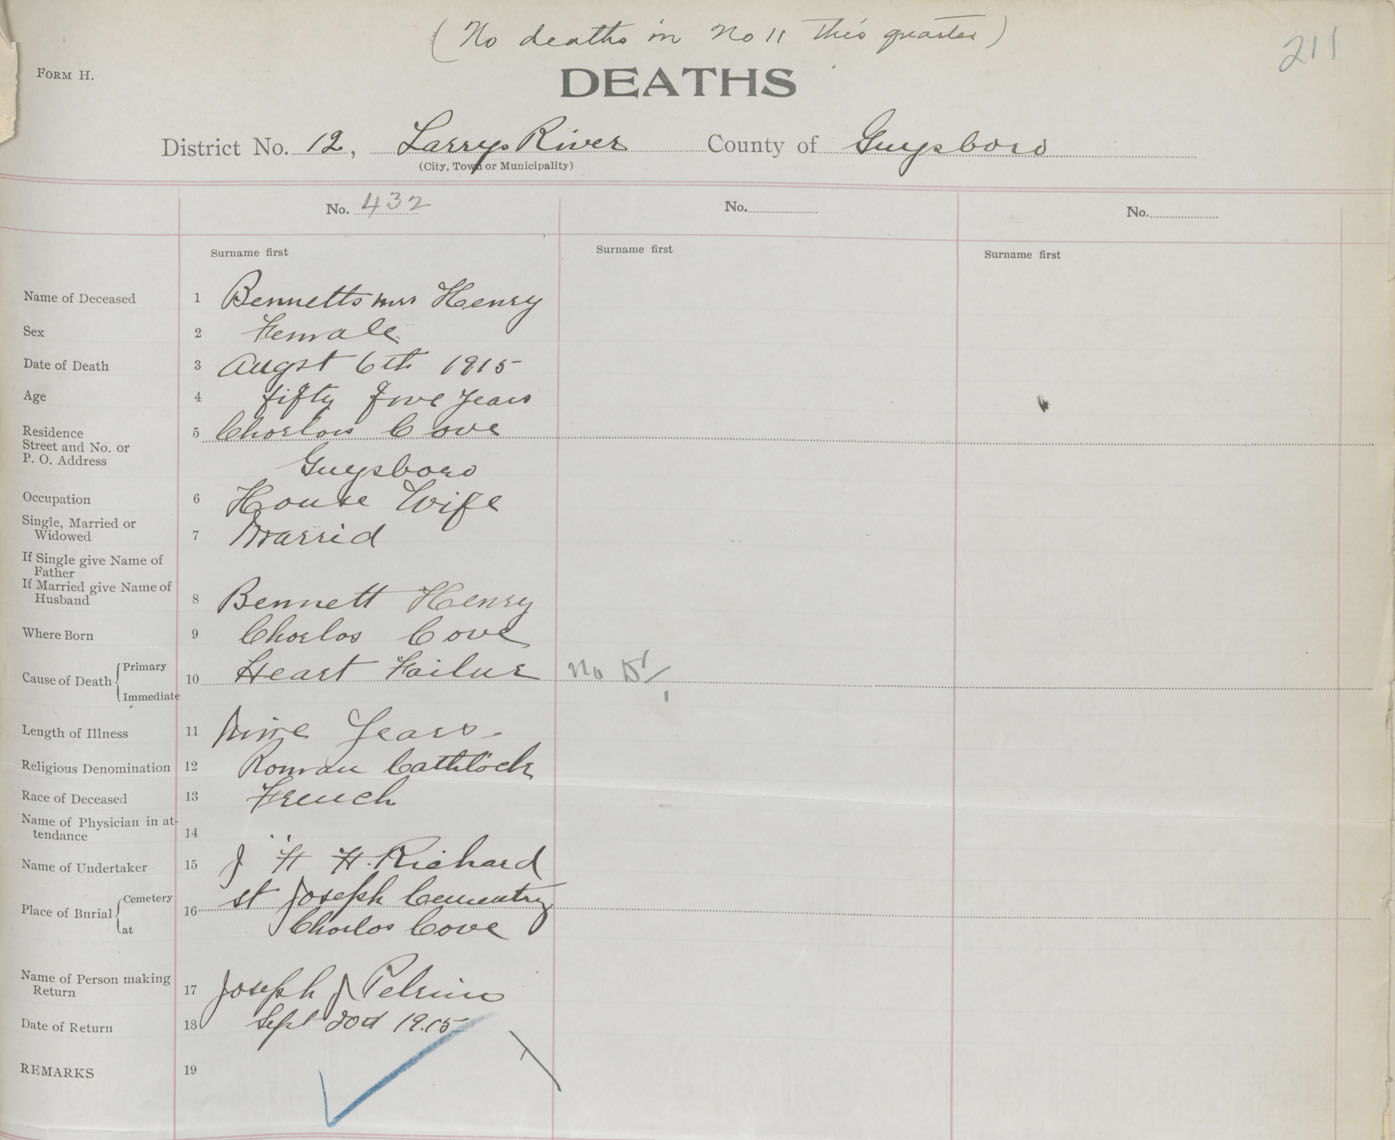 (No deaths in No 11 this quarter)
211
FORM H.
DEATHS
District No. 12, Larrys River County of Guysboro
(City, Town or Municipality)
No. 432 No. No.
Surname first Surname first Surname first
Name of Deceased 1 Bennetts mrs Henry
Sex 2 Female
Date of Death 3 Augst 6th 1915
Age 4 fifty five years
Residence
Street and No. or
P. O. Address
5 Chorlos Cove
Guysboro
Occupation 6 House Wife
Single, Married or
Widowed
7 Marrid
If Single give Name of
Father
If Married give Name of
Husband
8 Bennett Henry
Where Born 9 Chorlos Cove
Cause of Death { Primary
Immediate
10 Heart Failur No Dr
Length of Illness 11 Nine Years
Religious Denomination 12 Roman Cathlock
Race of Deceased 13 French
Name of Physician in at-
tendance
14
Name of Undertaker 15 J H H. Richard
Place of Burial { Cemetery
at
16 st Joseph Cementry
Chorlos Cove
Name of Person making
Return
17 Joseph J Pelrine
Date of Return 18 Sept 1915
REMARKS 19